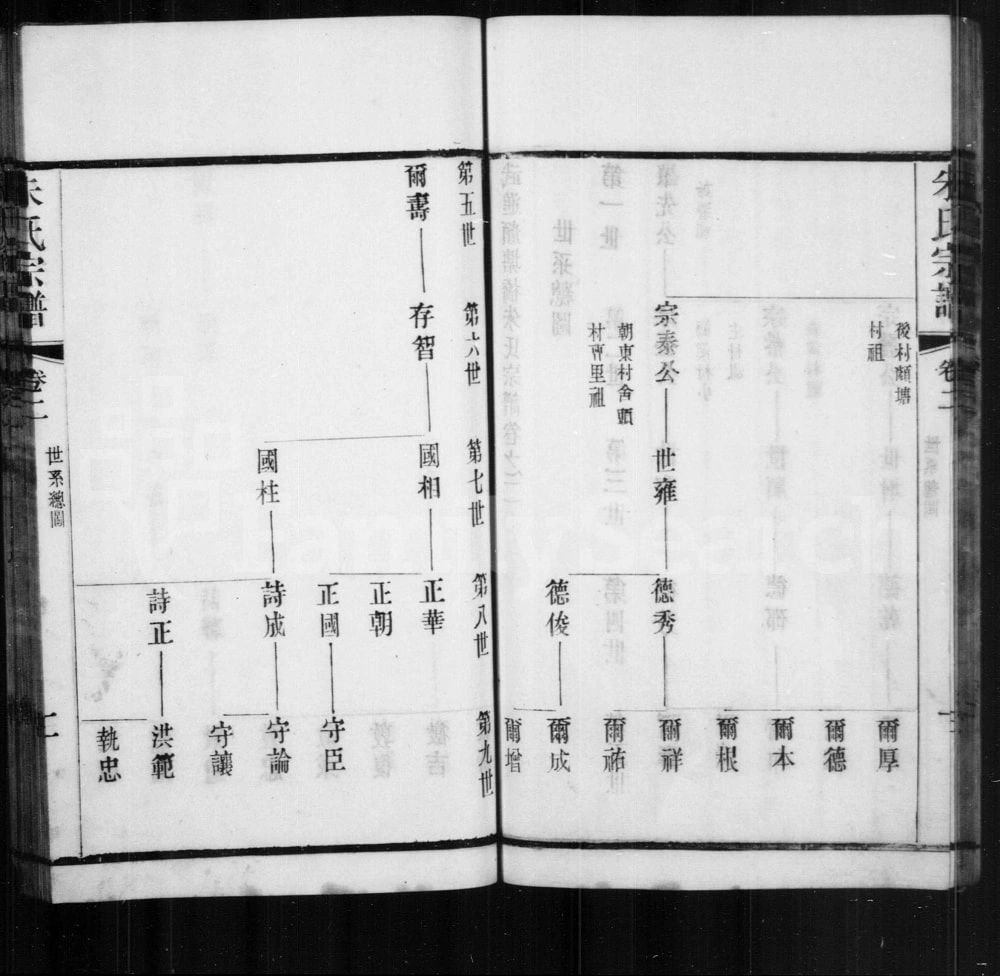 朱氏宗譜
卷二
後村顏塘
村祖
爾厚
爾德
爾本
爾根
宗泰公
世雍
德秀
爾祥
爾祐
朝東村舍頭
村曹里祖
德俊
爾成
爾增
第五世
第六世
第七世
第八世
第九世
爾壽
存智
國相
正華
正朝
正國
守臣
國柱
詩成
守論
守讓
詩正
洪範
執忠
朱氏宗譜
卷二
世系總圖
二